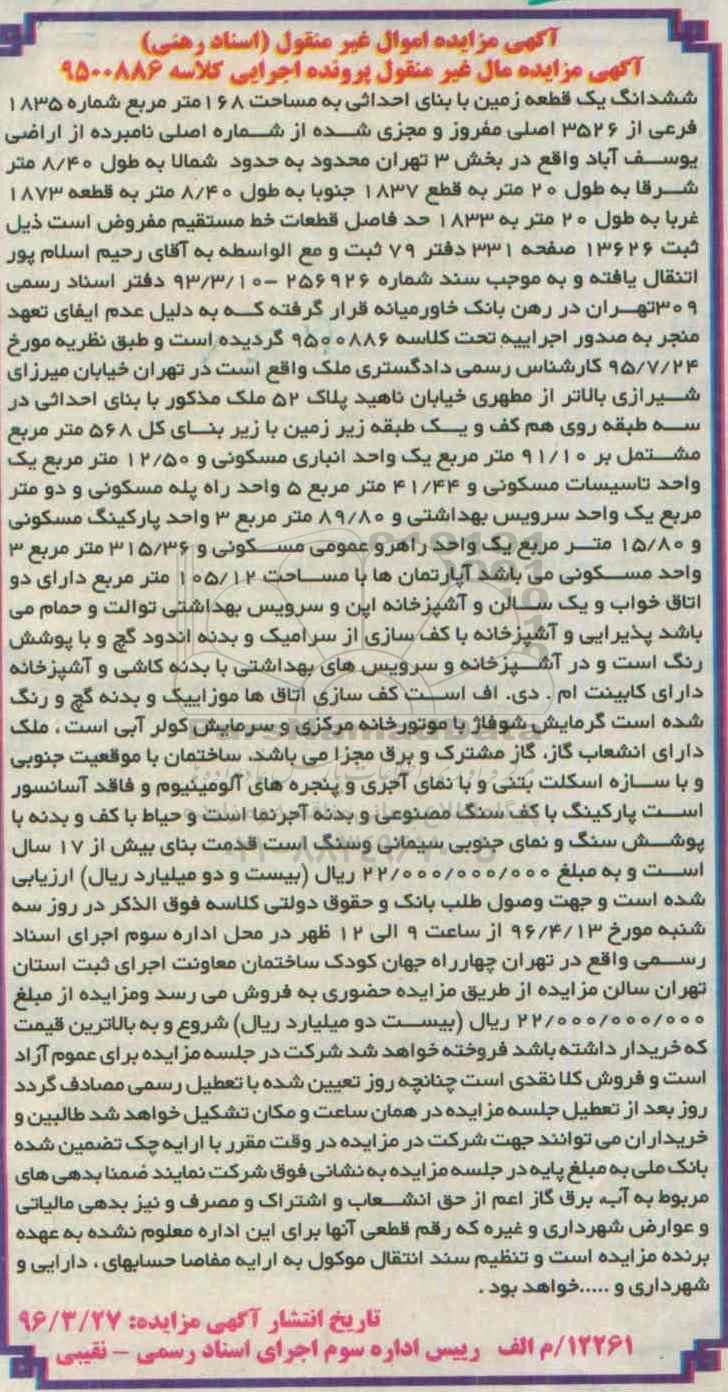 آگهی مزایده اموال غیر منقول (اسناد رهنی)
آگهی مزایده مال غیر منقول پرونده اجرایی کلاسه ۹۵۰۰۸۸۶
ششدانگ یک قطعه زمین با بنای احداثی به مساحت ۱۶۸متر مربع شماره ۱۸۳۵
فرعی از ۳۵۲۶ اصلی مفروز و مجزی شده از شماره اصلی نامبرده از اراضی
یوسف آباد واقع در بخش ۳ تهران محدود به حدود شمالا به طول ۸/۴۰ متر
شرقا به طول ۲۰ متر به قطع ۱۸۳۷ جنوبا به طول ۸/۴۰ متر به قطعه ۱۸۷۳
غربا به طول ۲۰ متر به ۱۸۳۳ حد فاصل قطعات خط مستقیم مفروض است ذیل
ثبت ۱۳۶۲۶ صفحه ۳۳۱ دفتر ۷۹ ثبت و مع الواسطه به آقای رحیم اسلام پور
انتقال یافته و به موجب سند شماره ۲۵۶۹۲۶ -۹۳/۳/۱۰ دفتر اسناد رسمی
۳۰۹تهران در رهن بانک خاورمیانه قرار گرفته که به دلیل عدم ایفای تعهد
منجر به صدور اجراییه تحت کلاسه ۹۵۰۰۸۸۶ گردیده است و طبق نظریه مورخ
۹۵/۷/۲۴ کارشناس رسمی دادگستری ملک واقع است در تهران خیابان میرزای
شیرازی بالاتر از مطهری خیابان ناهید پلاک ۵۲ ملک مذکور با بنای احداثی در
سه طبقه روی هم کف و یک طبقه زیر زمین با زیر بنای کل ۵۶۸ متر مربع
مشتمل بر ۹۱/۱۰ متر مربع یک واحد انباری مسکونی و ۱۲/۵۰ متر مربع یک
واحد تاسیسات مسکونی و ۴۱/۴۴ متر مربع ۵ واحد راه پله مسکونی و دو متر
مربع یک واحد سرویس بهداشتی و ۸۹/۸۰ متر مربع ۳ واحد پارکینگ مسکونی
و ۱۵/۸۰ متر مربع یک واحد راهرو عمومی مسکونی و ۳۱۵/۳۶ متر مربع ۳
واحد مسکونی می باشد آپارتمان ها با مساحت ۱۰۵/۱۲ متر مربع دارای دو
اتاق خواب و یک سالن و آشپزخانه اپن و سرویس بهداشتی توالت و حمام می
باشد پذیرایی و آشپزخانه با کف سازی از سرامیک و بدنه اندود گچ و با پوشش
رنگ است و در آشپزخانه و سرویس های بهداشتی با بدنه کاشی و آشپزخانه
دارای کابینت ام . دی. اف است کف سازی اتاق ها موزاییک و بدنه گچ و رنگ
شده است گرمایش شوفاژ با موتورخانه مرکزی و سرمایش کولر آبی است ، ملک
دارای انشعاب گاز، گاز مشترک و برق مجزا می باشد. ساختمان با موقعیت جنوبی
و با سازه اسکلت بتنی و با نمای آجری و پنجره های آلومینیوم و فاقد آسانسور
است پارکینگ با کف سنگ مصنوعی و بدنه آجرنما است و حیاط با کف و بدنه با
پوشش سنگ و نمای جنوبی سیمانی وسنگ است قدمت بنای بیش از ۱۷ سال
است و به مبلغ ۲۲/۰۰۰/۰۰۰/۰۰۰ ریال (بیست و دو میلیارد ریال) ارزیابی
شده است و جهت وصول طلب بانک و حقوق دولتی کلاسه فوق الذکر در روز سه
شنبه مورخ ۹۶/۴/۱۳ از ساعت ۹ الی ۱۲ ظهر در محل اداره سوم اجرای اسناد
رسمی واقع در تهران چهارراه جهان کودک ساختمان معاونت اجرای ثبت استان
تهران سالن مزایده از طریق مزایده حضوری به فروش می رسد ومزایده از مبلغ
۲۲/۰۰۰/۰۰۰/۰۰۰ ریال (بیست دو میلیارد ریال) شروع و به بالاترین قیمت
که خریدار داشته باشد فروخته خواهد شد شرکت در جلسه مزایده برای عموم آزاد
است و فروش کلا نقدی است چنانچه روز تعیین شده با تعطیل رسمی مصادف گردد
روز بعد از تعطیل جلسه مزایده در همان ساعت و مکان تشکیل خواهد شد طالبین و
خریداران می توانند جهت شرکت در مزایده در وقت مقرر با ارایه چک تضمین شده
بانک ملی به مبلغ پایه در جلسه مزایده به نشانی فوق شرکت نمایند ضمنا بدهی های
مربوط به آب، برق گاز اعم از حق انشعاب و اشتراک و مصرف و نیز بدهی مالیاتی
و عوارض شهرداری و غیره که رقم قطعی آنها برای این اداره معلوم نشده به عهده
برنده مزایده است و تنظیم سند انتقال موکول به ارایه مفاصا حسابهای ، دارایی و
شهرداری و .....خواهد بود .
تاریخ انتشار آگهی مزایده: ۹۶/۳/۲۷
۱۲۲۶۱/م الف رییس اداره سوم اجرای اسناد رسمی - نقیبی